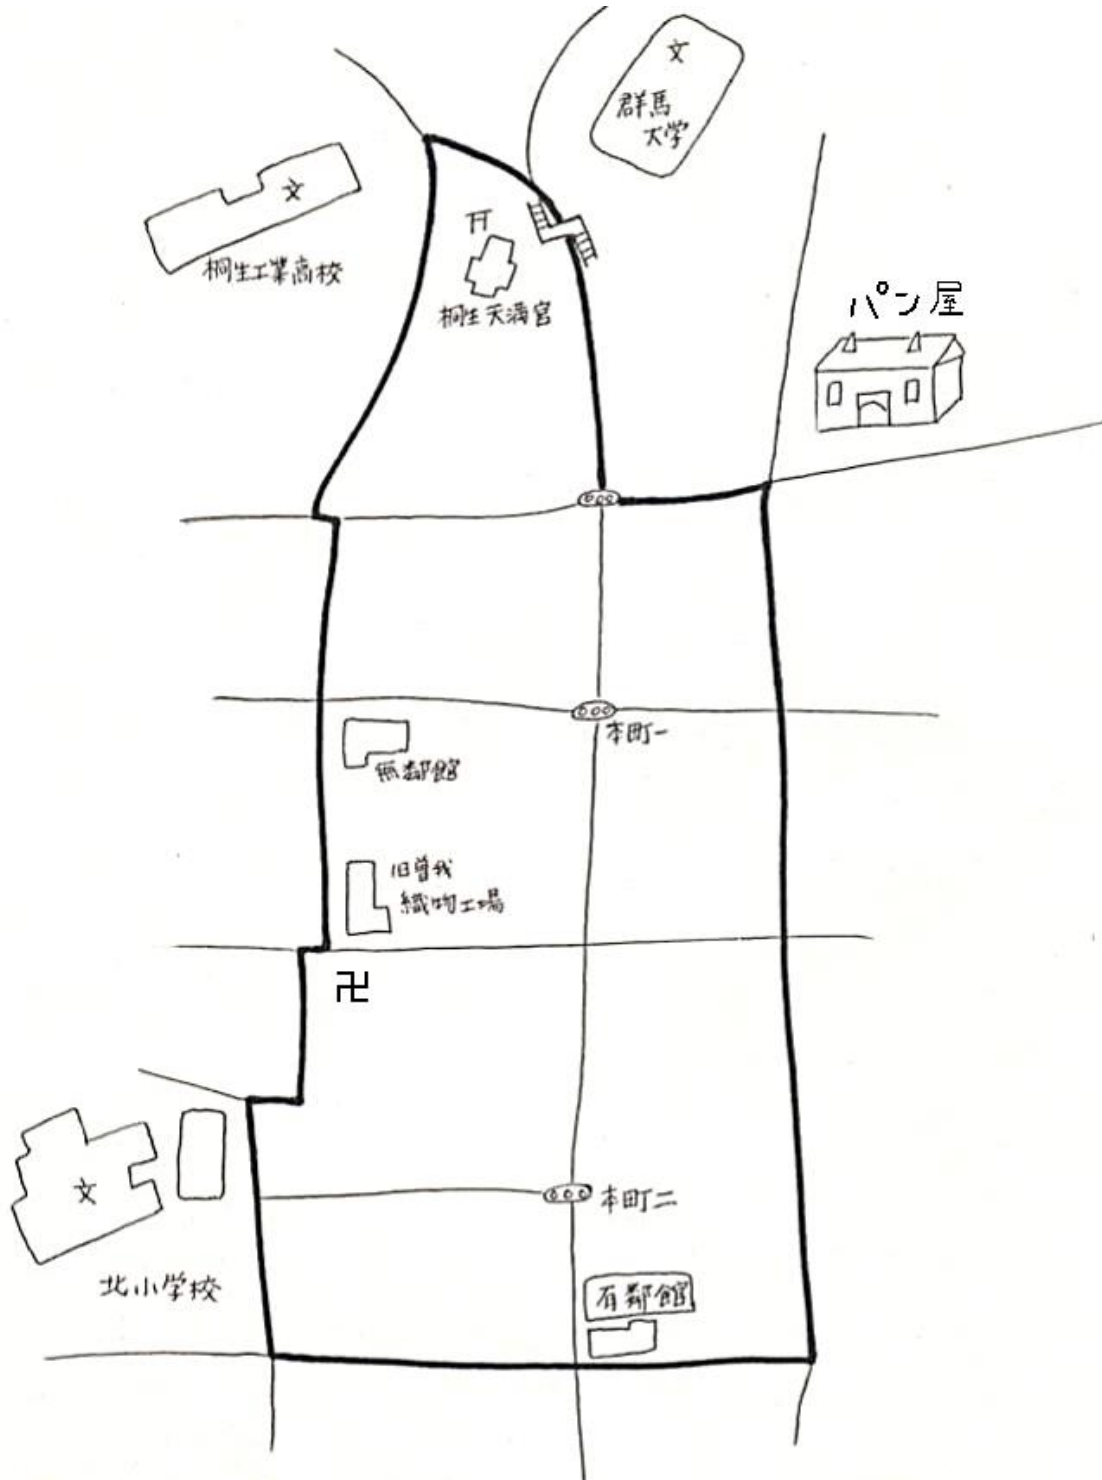 文
群馬
大学
文
桐生工業高校
桐生天満宮
パン屋
本町一
無鄰館
旧曽我
織物工場
卍
文
本町二
北小学校
有鄰館